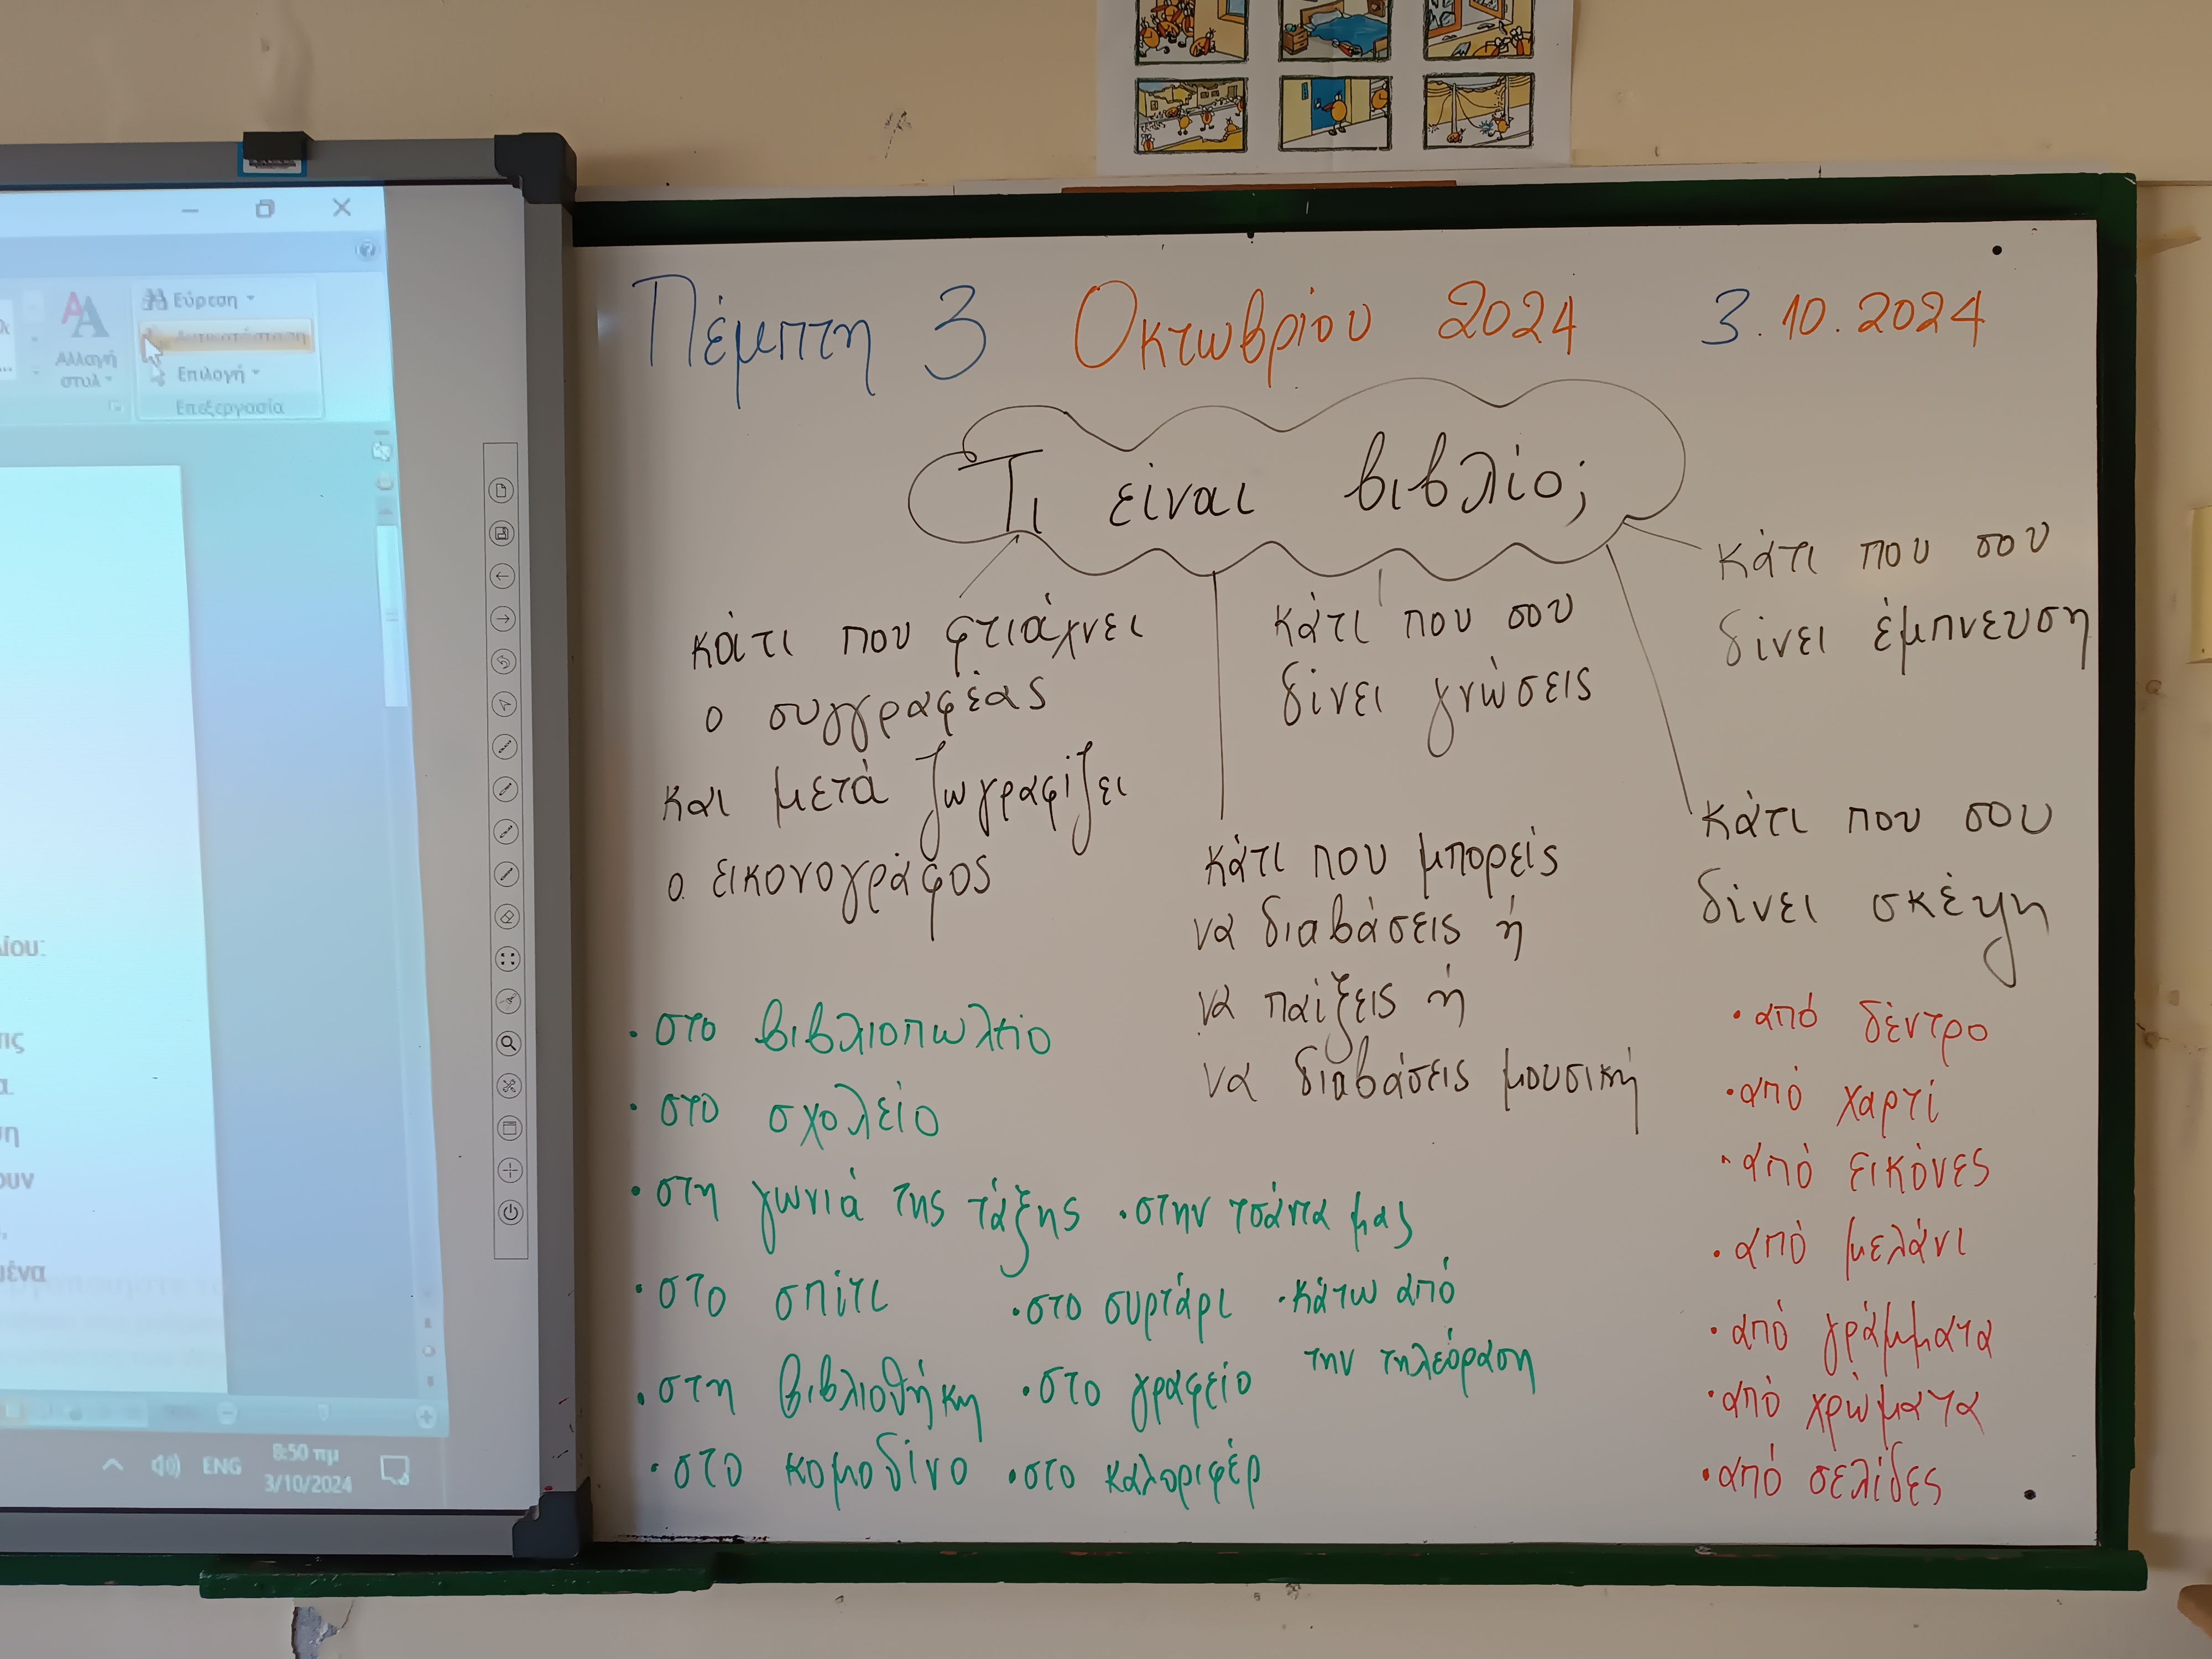 Εύρεση
Αντικατάσταση
Επιλογή
Επεξεργασία
Αλλαγή
στυλ
ίου:
ις
α.
ση
ουν
μένα
ENG
8:50 πμ
3/10/2024
Πέμπτη 3 Οκτωβρίου 2024 3.10.2024
Τι είναι βιβλίο;
κάτι που φτιάχνει
ο συγγραφέας
και μετά ζωγραφίζει
ο εικονογράφος
κάτι που σου
δίνει γνώσεις
κάτι που σου
δίνει έμπνευση
κάτι που μπορείς
να διαβάσεις ή
να παίξεις ή
να διαβάσεις μουσική
κάτι που σου
δίνει σκέψη
• στο βιβλιοπωλείο
• στο σχολείο
• στη γωνιά της τάξης • στην τσάντα μας
• στο σπίτι • στο συρτάρι • κάτω από
την τηλεόραση
• στη βιβλιοθήκη • στο γραφείο
• στο κομοδίνο • στο καλοριφέρ
• από δέντρο
• από χαρτί
• από εικόνες
• από μελάνι
• από γράμματα
• από χρώματα
• από σελίδες